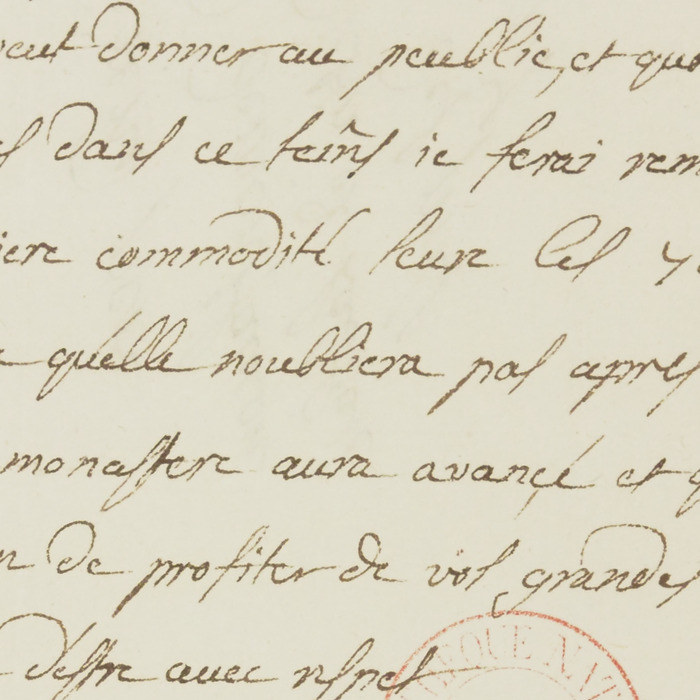 peut donner au peublic, et quo
dans ce tem̃s ie ferai rem
iere commodité leur les
quélle noubliera pas apres
monastere aura avancé et q
n de profiter de vos grandes
déstre avec respet
EQUE NAT